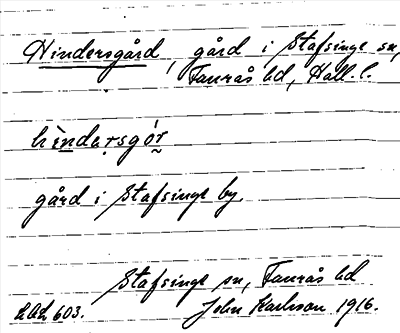 Hindersgård, gård i Stafsinge sn,
Faurås hd, Hall. l.
hìndaʂgór
gård i Stafsinge by.
Stafsinge sn, Faurås hd
603. John Karlsson 1916.